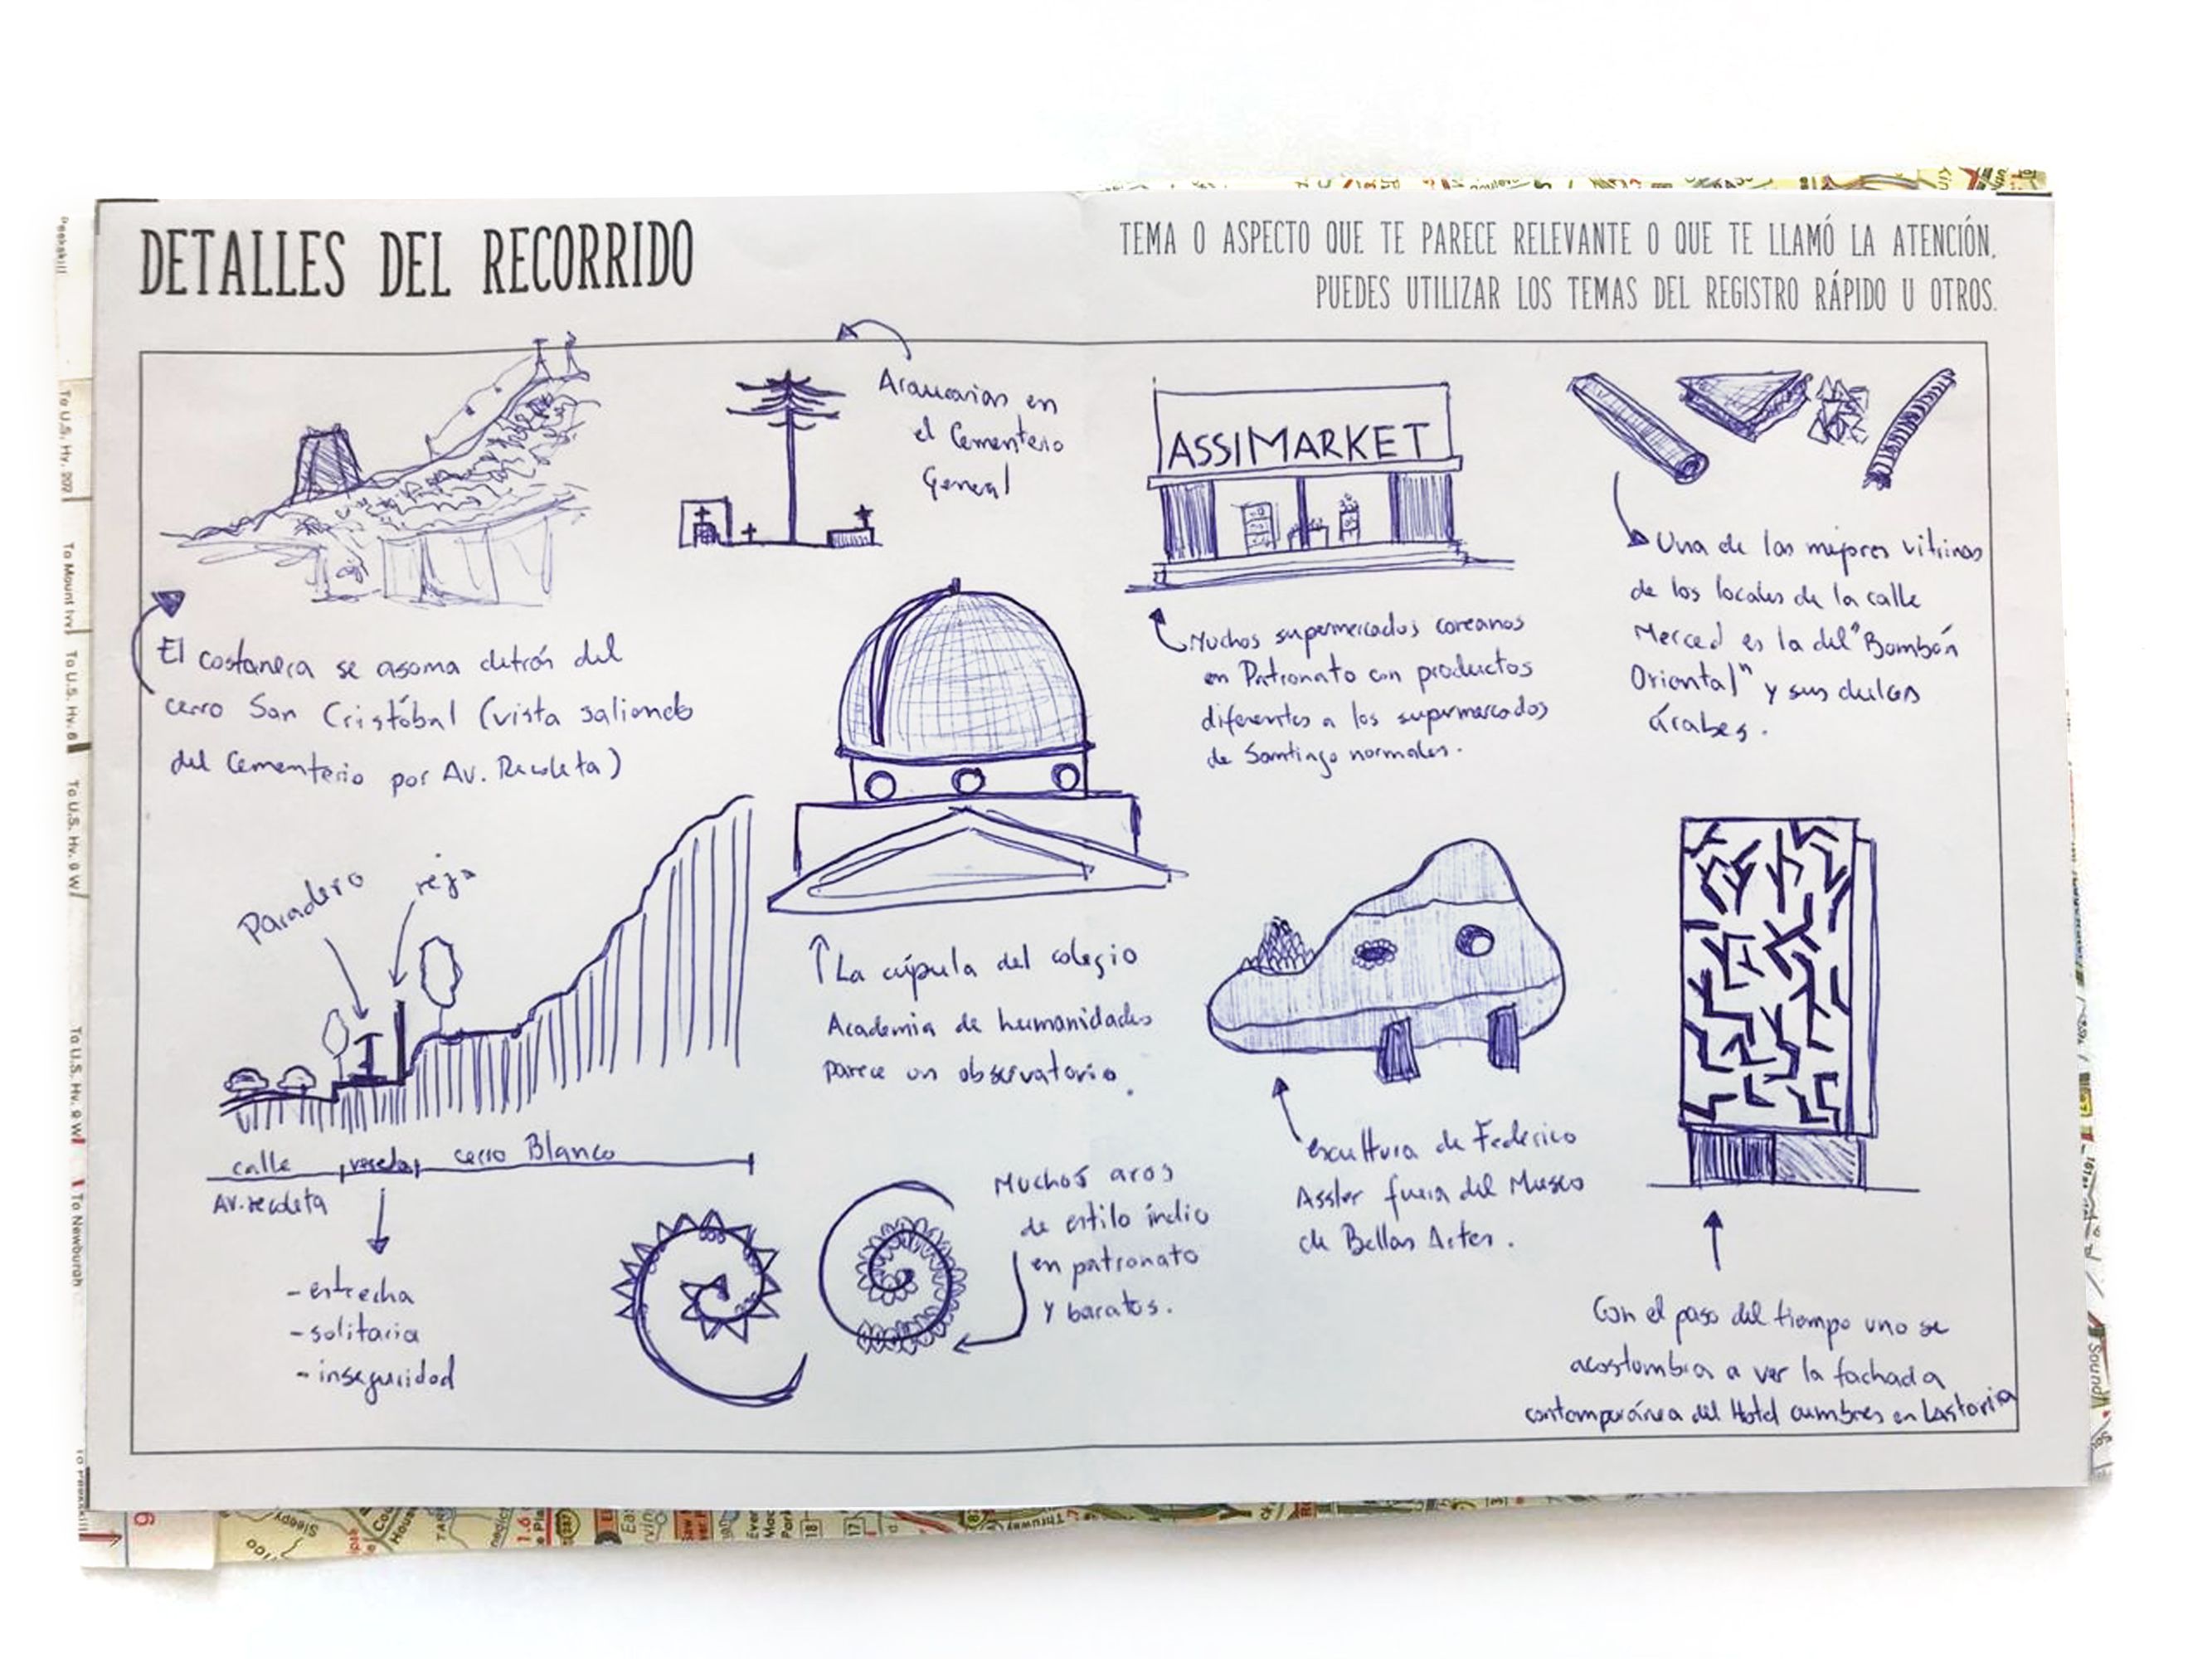 DETALLES DEL RECORRIDO
TEMA O ASPECTO QUE TE PARECE RELEVANTE O QUE TE LLAMÓ LA ATENCIÓN,
PUEDES UTILIZAR LOS TEMAS DEL REGISTRO RÁPIDO U OTROS.
El costanera se asoma detrás del
cerro San Cristóbal (vista saliendo
del Cementerio por Av. Recoleta)
Araucarias en
el Cementerio
General
ASSIMARKET
Muchos supermercados coreanos
en Patronato con productos
diferentes a los supermercados
de Santiago normales.
Una de las mejores vitrinas
de los locales de la calle
Merced es la del "Bombón
Oriental" y sus dulces
árabes.
Paradero
reja
calle
vereda
cerro Blanco
Av. recoleta
- estrecha
- solitaria
- inseguridad
La cúpula del colegio
Academia de humanidades
parece un observatorio.
Muchos aros
de estilo índio
en patronato
y baratos.
escultura de Federico
Assler fuera del Museo
de Bellas Artes.
Con el paso del tiempo uno se
acostumbra a ver la fachada
contemporánea del Hotel cumbres en Lastarria
Peekskill
To U.S. Hy. 202
To Mount Ivy
To U.S. Hy. 6
To U.S. Hy. 9 W
To U.S. Hy. 9 W
To Newburgh
To Peekskill
9
Sleepy
Sound